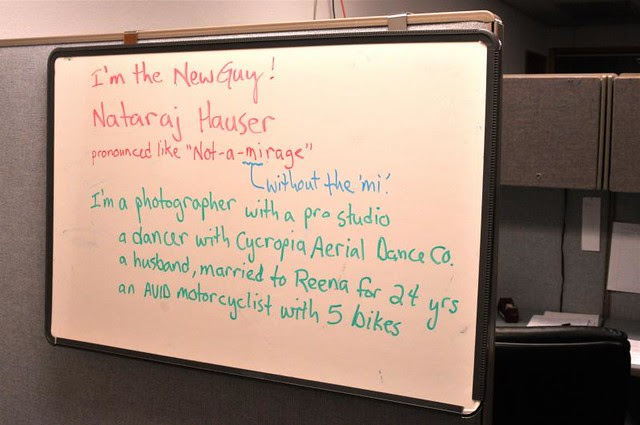 I'm the New Guy!
Nataraj Hauser
pronounced like "Not-a-mirage"
without the 'mi'.
I'm a photographer with a pro studio
a dancer with Cycropia Aerial Dance Co.
a husband, married to Reena for 24 yrs
an AVID motorcyclist with 5 bikes